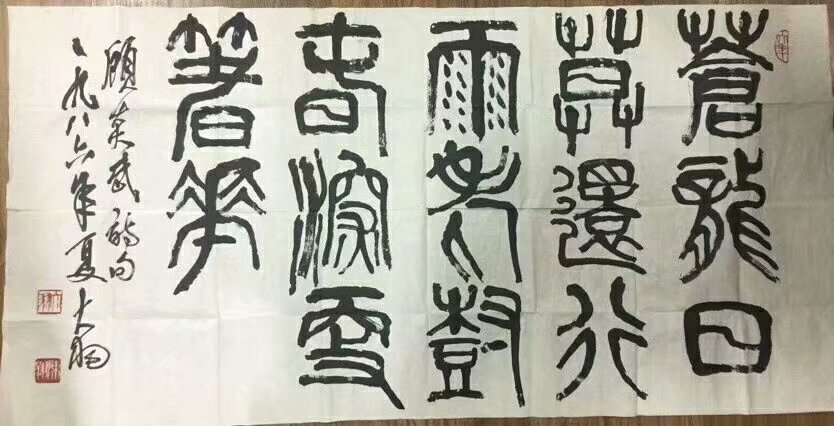 蒼龍日
莫還行
雨老樹
春深更
箸華
顧炎武詩句
一九八六年夏大羽